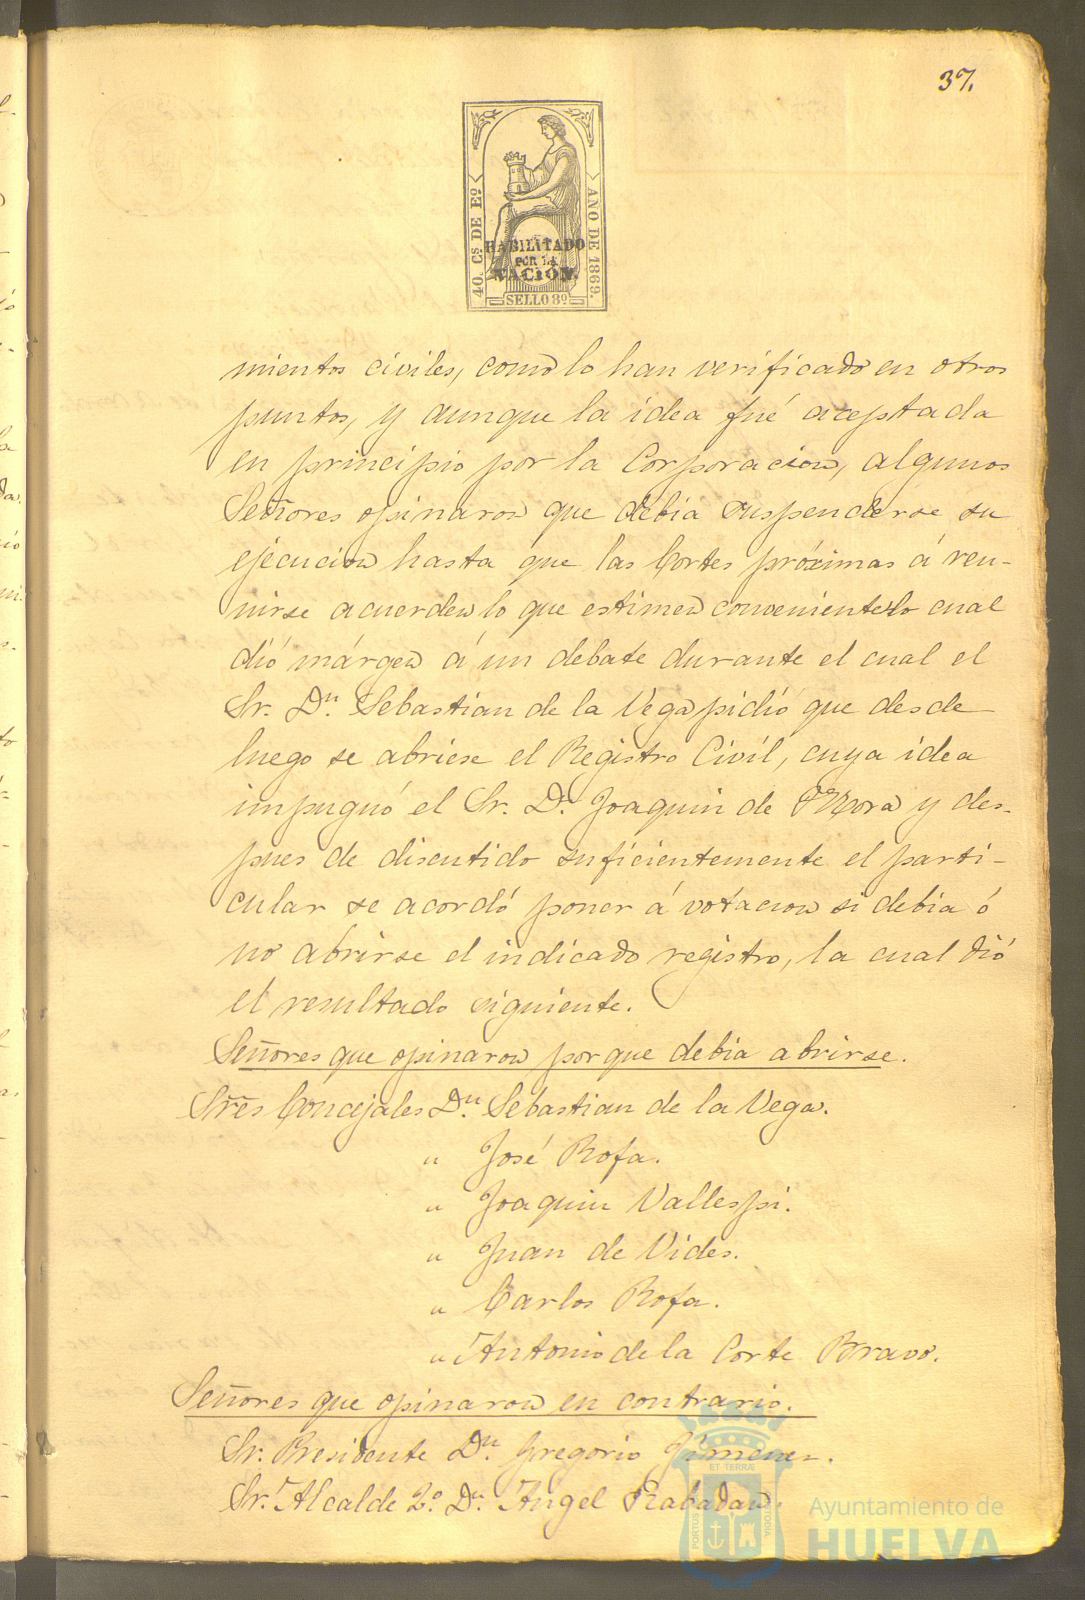 37.
40. Cs DE Eo.
AÑO DE 1869.
HABILITADO
POR LA
NACIÓN.
SELLO 8º
mientos civiles, como lo han verificado en otros
puntos, y aunque la idea fué aceptada
en principio por la Corporacion, algunos
Señores opinaron que debia suspenderse su
ejecucion hasta que las Cortes próximas á reu-
nirse acuerden lo que estimen conveniente lo cual
dió márgen á un debate durante el cual el
Sr. Dn. Sebastian de la Vega pidió que desde
luego se abriese el Registro Civil, cuya idea
impugnó el Sr. D. Joaquin de Mora y des-
pues de discutido suficientemente el parti-
cular se acordó poner á votacion si debia ó
no abrirse el indicado registro, la cual dió
el resultado siguiente.
Señores que opinaron porque debia abrirse.
Sres Concejales Dn. Sebastian de la Vega.
" José Rofa.
" Joaquin Vallespi.
" Juan de Vides.
" Carlos Rofa.
" Antonio de la Corte Bravo.
Señores que opinaron en contrario.
Sr. Presidente Dn. Gregorio Jimenez.
Sr. Alcalde 2º Dn. Angel Rabadan.
ET TERRÆ
PORTUS
CUSTODIA
Ayuntamiento de
HUELVA